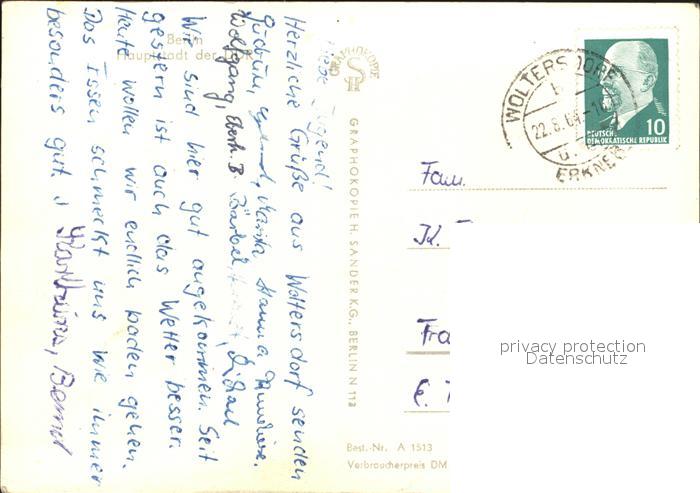 Berlin
Hauptstadt der DDR
Liebe Jugend!
Herzliche Grüße aus Woltersdorf senden
Gudrun, Hanna
Wolfgang, Eberh. B. Bärbel,
Wir sind hier gut angekommen. Seit
gestern ist auch das Wetter besser.
Heute wollen wir endlich baden gehen.
Das Essen schmeckt uns wie immer
besonders gut. Bernd
GRAPHOKOPIE
GRAPHOKOPIE H. SANDER K.G., BERLIN N 113
WOLTERSDORF
b
22.8.64
ü.
ERKNER
10
DEUTSCHE
DEMOKRATISCHE REPUBLIK
Fam.
K.
Fra
privacy protection
Datenschutz
Best.-Nr. A 1513
Verbraucherpreis DM